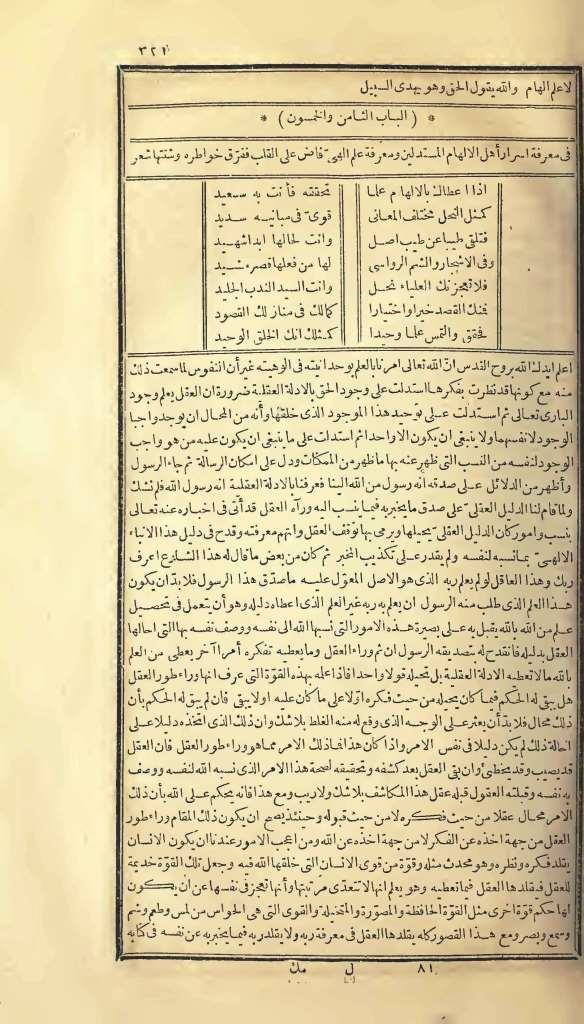 ٣٢١
لاعلم الهام والله يقول الحق وهو يهدى السبيل
* ( الباب الثامن والخمسون ) *
فى معرفة اسرار أهل الالهام المستدلين ومعرفة علم الهىّ فاض على القلب ففرّق خواطره وشتتها شعر
اذا اعطاك بالالهام علما تحققته فأنت به سعيد
كمثل النحل مختلف المعانى قوىّ فى مبانيه سديد
فتلقى طيبا عن طيب اصل وانت لحالها ابدا شهيد
وفى الاشجار والشم الرواسى لها من فعلها قصر مشيد
فلا تعجزنك العلياء نحل وانت السيد الندب الجليد
فمنك القصد خيرا واختيارا كمالك فى منازلك القصود
فحقق والتمس علما وحيدا كمثلك انك الخلق الوحيد
اعلم ايدك الله بروح القدس انّ الله تعالى امرنا بالعلم بوحدانيته فى الوهيته غير أن النفوس لما سمعت ذلك
منه مع كونها قد نظرت بفكرها استدلت على وجود الحق بالادلة العقلية ضرورة ان العقل يعلم وجود
البارى تعالى ثم استدلت على توحيد هذا الموجود الذى خلقها وأنه من المحال ان يوجد واجبا
الوجود لانفسهما ولا ينبغى ان يكون الا واحدا ثم استدلت على ما ينبغى ان يكون عليه من هو واجب
الوجود لنفسه من النسب التى ظهر عنه بها ما ظهر من الممكنات ودل على امكان الرسالة ثم جاء الرسول
وأظهر من الدلائل على صدقه أنه رسول من الله الينا فعرفنا بالادلة العقلية انه رسول الله فلم نشك
ولما قام لنا الدليل العقلىّ على صدق ما يخبر به فيما ينسب اليه ورآه العقل قد أتى فى اخباره عنه تعالى
بنسب وامور كان الدليل العقلىّ يحيلها ويرمى بها توقف العقل واتهم معرفته وقدح فى دليل هذا الانباء
الالهىّ بما نسبه لنفسه ولم يقدر على تكذيب المخبر ثم كان من بعض ما قال له هذا الشارع اعرف
ربك وهذا العاقل لو لم يعلم ربه الذى هو الاصل المعوّل عليه ما صدّق هذا الرسول فلابدّ ان يكون
هذا العلم الذى طلب منه الرسول ان يعلم به ربه غير العلم الذى اعطاه دليله وهو أن يتعمل فى تحصيل
علم من الله بالله يقبل به على بصيرة هذه الامور التى نسبها الله الى نفسه ووصف نفسه بها التى احالها
العقل بدليله فانقدح له بتصديقه الرسول ان ثم وراء العقل وما يعطيه تفكره أمرا آخر يعطى من العلم
بالله ما لا تعطيه الادلة العقلية بل تحيله قولا واحدا فاذا علمه بهذه القوّة التى عرف انها وراء طور العقل
هل يبقى له الحكم فيما كان يحيله من حيث فكره اوّلا على ما كان عليه او لا يبقى فان لم يبق له الحكم بأن
ذلك محال فلابدّ أن يعثر على الوجه الذى وقع له منه الغلط بلا شك وان ذلك الذى اتخذه دليلا على
احالة ذلك لم يكن دليلا فى نفس الامر واذا كان هذا فما ذلك الامر مما هو وراء طور العقل فان العقل
قد يصيب وقد يخطئ وان بقى للعقل بعد كشفه وتحقيقه لصحة هذا الامر الذى نسبه الله لنفسه ووصف
به نفسه وقبلته العقول قبله عقل هذا المكاشف بلا شك ولا ريب ومع هذا فانه يحكم على الله بأن ذلك
الامر محال عقلا من حيث فكره لا من حيث قبوله وحينئذ يصح ان يكون ذلك المقام وراء طور
العقل من جهة اخذه عن الفكر لا من جهة اخذه عن الله ومن اعجب الامور عندنا ان يكون الانسان
يقلد فكره ونظره وهو محدث مثله وقوّة من قوى الانسان التى خلقها الله فيه وجعل تلك القوّة خديمة
للعقل فيقلدها العقل فيما تعطيه وهو يعلم انها لا تتعدّى مرتبتها وأنها تعجز فى نفسها عن ان يكون
لها حكم قوّة اخرى مثل القوّة الحافظة والمصوّرة والمتخيلة والقوى التى هى الحواس من لمس وطعم وشم
وسمع وبصر ومع هذا القصور كله يقلدها العقل فى معرفة ربه ولا يقلد ربه فيما يخبر به عن نفسه فى كتابه
٨١ ل مك